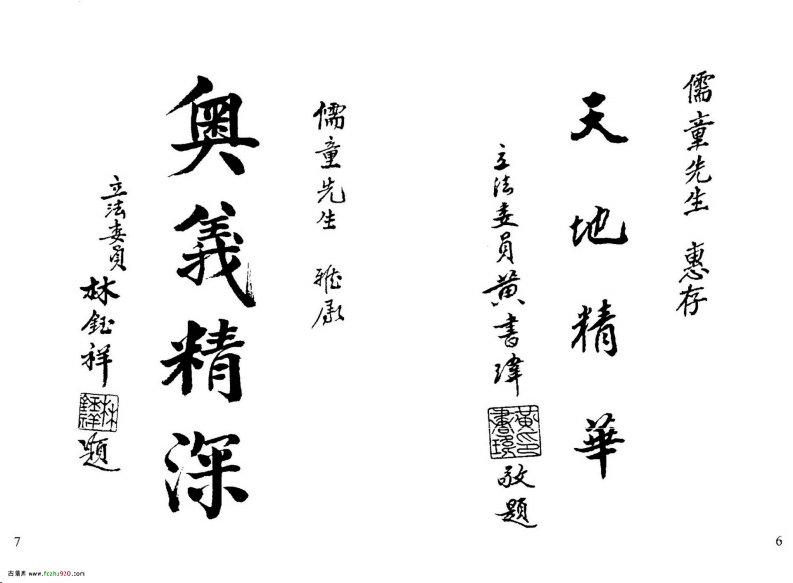 儒童先生 惠存
天地精華
立法委員黃書瑋
敬題
6
儒童先生 雅屬
奧義精深
立法委員林鈺祥
題
7
www.fczhu920.com